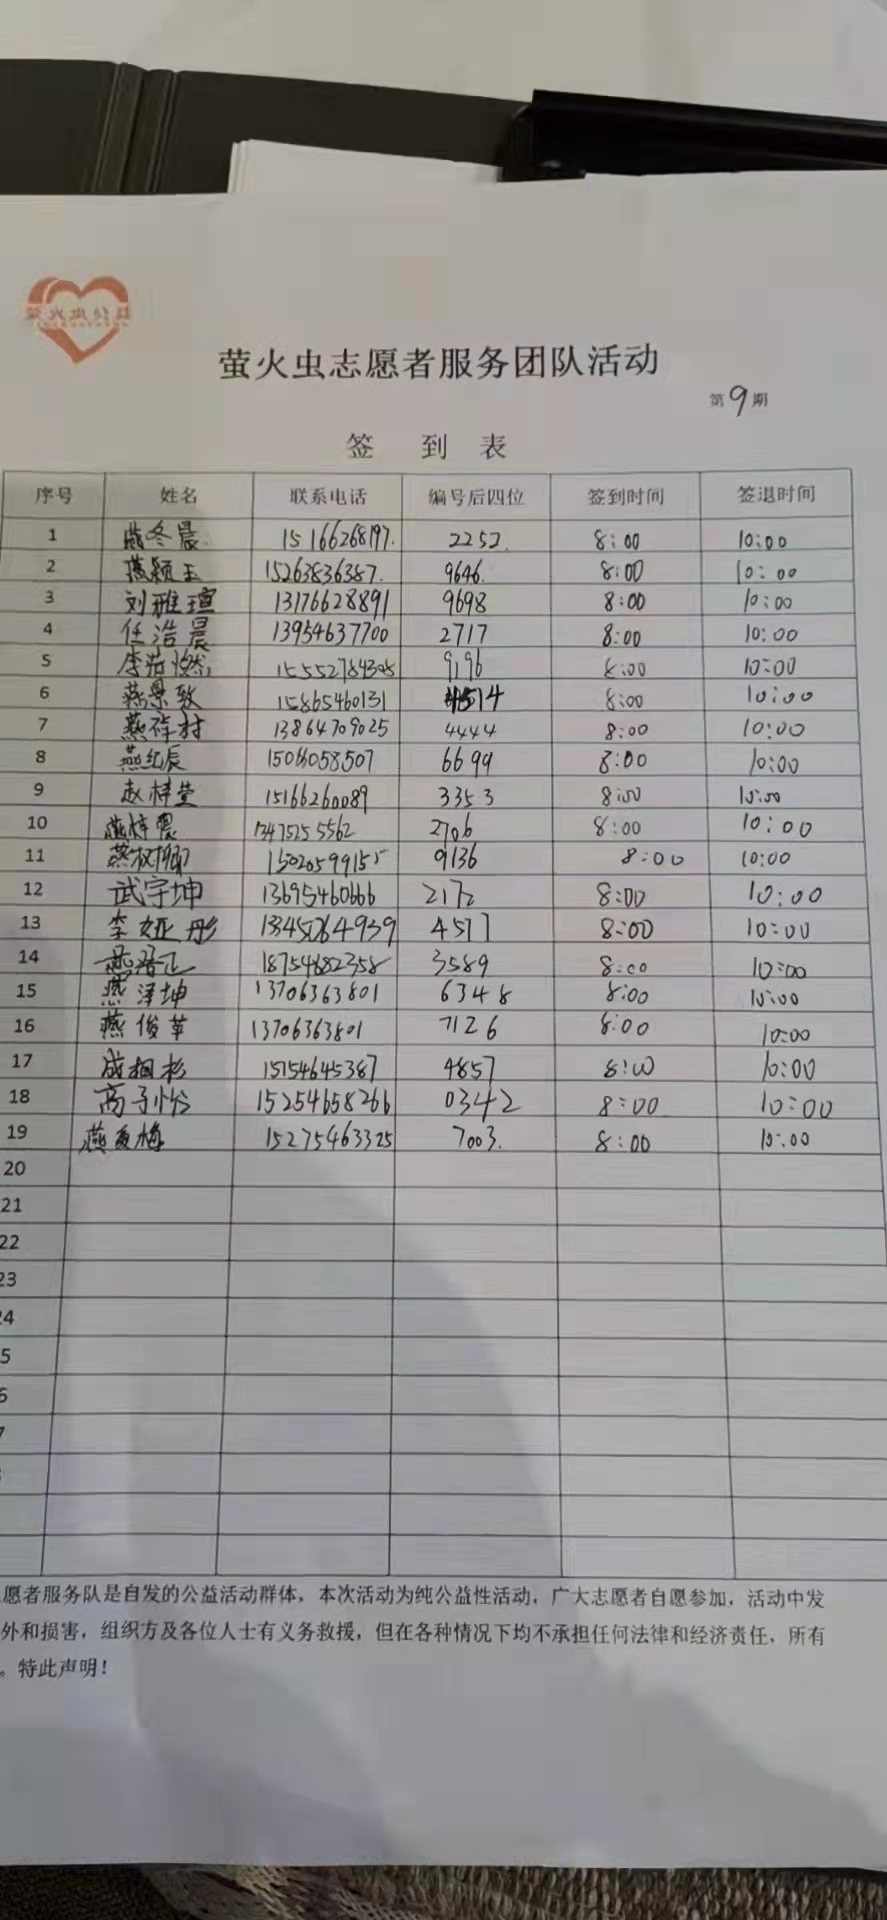 萤火虫志愿者服务团队活动
第9期
签 到 表
序号 姓名 联系电话 编号后四位 签到时间 签退时间
1 燕冬晨 15166268197. 2252. 8:00 10:00
2 燕颖玉 15263836387. 9646. 8:00 10:00
3 刘雅瑄 13176628891 9698 8:00 10:00
4 任浩晨 13954637700 2717 8:00 10:00
5 李浩燃 15552784305 9196 8:00 10:00
6 燕景致 15865460131 4514 8:00 10:00
7 燕祥村 13864709025 4444 8:00 10:00
8 燕纪辰 15066058507 6699 8:00 10:00
9 赵梓莹 15166260089 3353 8:00 10:00
10 燕梓晨 13475255562 2706 8:00 10:00
11 燕树卿 15020599155 9136 8:00 10:00
12 武宇坤 13695460666 2172 8:00 10:00
13 李娅彤 13345064939 4577 8:00 10:00
14 燕 18754682358 3589 8:00 10:00
15 燕泽坤 13706363801 6348 8:00 10:00
16 燕俊苹 13706363801 7126 8:00 10:00
17 成桐杉 15154645387 4857 8:00 10:00
18 高子怡 15254658266 0342 8:00 10:00
19 燕夏梅 15275463325 7003. 8:00 10:00
20
21
22
23
愿者服务队是自发的公益活动群体，本次活动为纯公益性活动，广大志愿者自愿参加，活动中发
外和损害，组织方及各位人士有义务救援，但在各种情况下均不承担任何法律和经济责任，所有
。特此声明！